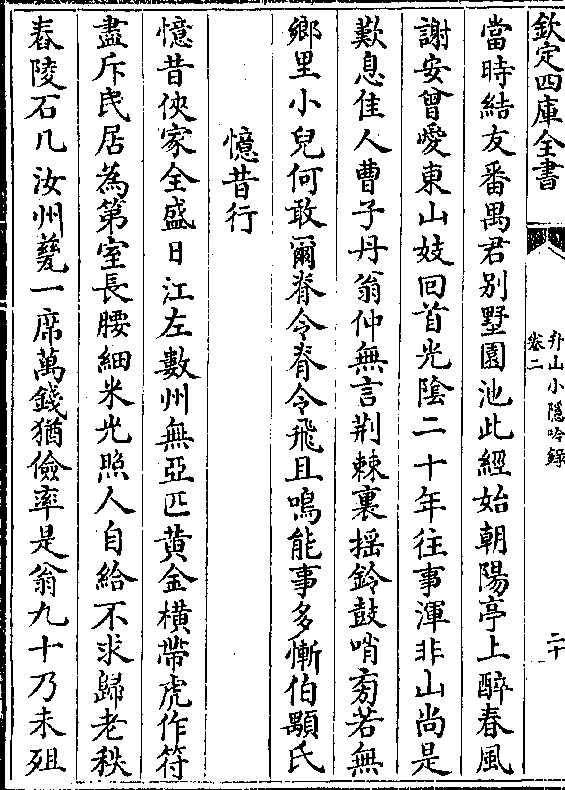 欽定四庫全書
弁山小隱吟錄
卷二
二十
當時結友番禺君别墅園池此經始朝陽亭上醉春風
謝安曾愛東山妓回首光陰二十年往事渾非山尚是
歎息佳人曹子丹翁仲無言荆棘裏揺鈴鼓哨旁若無
鄉里小兒何敢爾脊令脊令飛且鳴能事多慚伯顒氏
憶昔行
憶昔俠家全盛日江左數州無亞匹黄金横帶虎作符
盡斥民居為第室長腰細米光照人自給不求歸老秩
舂陵石几汝州甆一席萬錢猶儉率是翁九十乃未殂